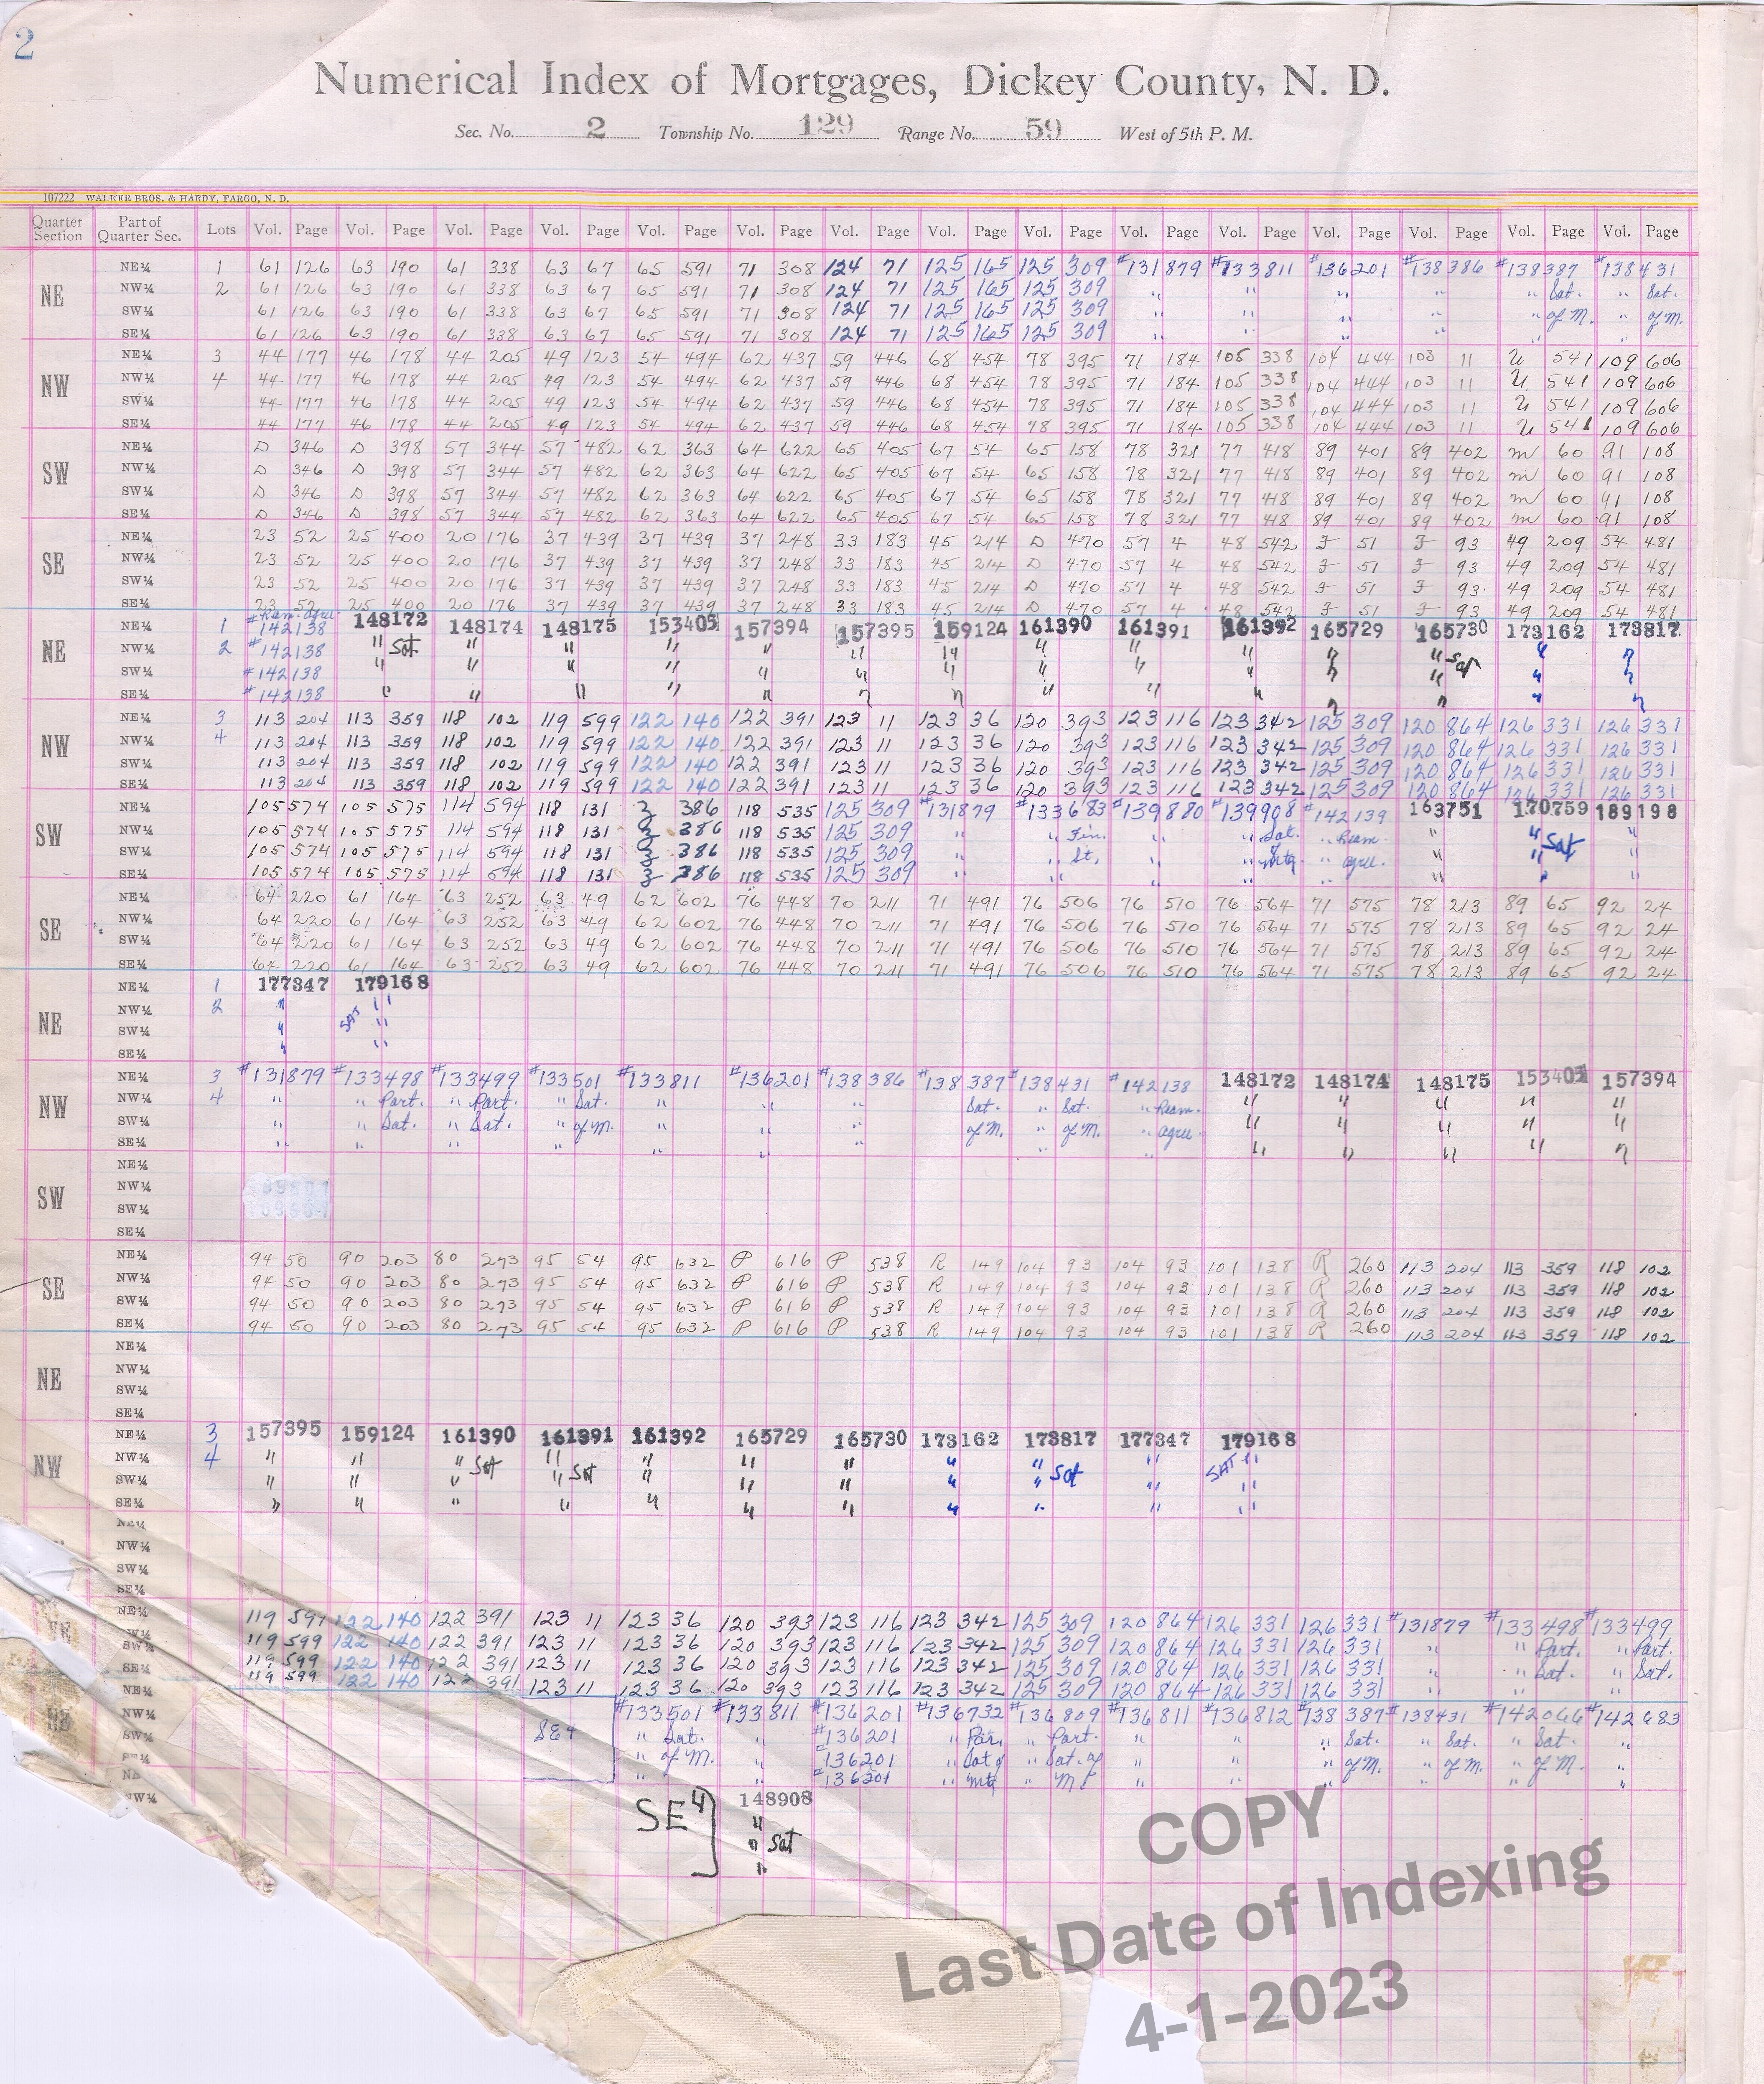 2
Numerical Index of Mortgages, Dickey County, N. D.
Sec. No. 2 Township No. 129 Range No. 59 West of 5th P. M.
107222 WALKER BROS. & HARDY, FARGO, N. D.
Quarter Section Part of Quarter Sec. Lots Vol. Page Vol. Page Vol. Page Vol. Page Vol. Page Vol. Page Vol. Page Vol. Page Vol. Page Vol. Page Vol. Page Vol. Page Vol. Page Vol. Page Vol. Page
NE NE¼ 1 61 126 63 190 61 338 63 67 65 591 71 308 124 71 125 165 125 309 #131879 #133811 #136201 #138386 #138387 #138431
NW¼ 2 61 126 63 190 61 338 63 67 65 591 71 308 124 71 125 165 125 309 " " " " " Sat. " Sat.
SW¼ 61 126 63 190 61 338 63 67 65 591 71 308 124 71 125 165 125 309 " " " " " of M. " of M.
SE¼ 61 126 63 190 61 338 63 67 65 591 71 308 124 71 125 165 125 309 " " " " " "
NW NE¼ 3 44 177 46 178 44 205 49 123 54 494 62 437 59 446 68 454 78 395 71 184 105 338 104 444 103 11 U 541 109 606
NW¼ 4 44 177 46 178 44 205 49 123 54 494 62 437 59 446 68 454 78 395 71 184 105 338 104 444 103 11 U 541 109 606
SW¼ 44 177 46 178 44 205 49 123 54 494 62 437 59 446 68 454 78 395 71 184 105 338 104 444 103 11 U 541 109 606
SE¼ 44 177 46 178 44 205 49 123 54 494 62 437 59 446 68 454 78 395 71 184 105 338 104 444 103 11 U 541 109 606
SW NE¼ D 346 D 398 57 344 57 482 62 363 64 622 65 405 67 54 65 158 78 321 77 418 89 401 89 402 M 60 91 108
NW¼ D 346 D 398 57 344 57 482 62 363 64 622 65 405 67 54 65 158 78 321 77 418 89 401 89 402 M 60 91 108
SW¼ D 346 D 398 57 344 57 482 62 363 64 622 65 405 67 54 65 158 78 321 77 418 89 401 89 402 M 60 91 108
SE¼ D 346 D 398 57 344 57 482 62 363 64 622 65 405 67 54 65 158 78 321 77 418 89 401 89 402 M 60 91 108
SE NE¼ 23 52 25 400 20 176 37 439 37 439 37 248 33 183 45 214 D 470 57 4 48 542 F 51 F 93 49 209 54 481
NW¼ 23 52 25 400 20 176 37 439 37 439 37 248 33 183 45 214 D 470 57 4 48 542 F 51 F 93 49 209 54 481
SW¼ 23 52 25 400 20 176 37 439 37 439 37 248 33 183 45 214 D 470 57 4 48 542 F 51 F 93 49 209 54 481
SE¼ 23 52 25 400 20 176 37 439 37 439 37 248 33 183 45 214 D 470 57 4 48 542 F 51 F 93 49 209 54 481
NE NE¼ 1 #142138 148172 148174 148175 153405 157394 157395 159124 161390 161391 161392 165729 165730 173162 173817
NW¼ 2 #142138 " Sat " " " " " " " " " " " Sat " "
SW¼ #142138 " " " " " " " " " " " " " "
SE¼ #142138 " " " " " " " " " " " " " "
NW NE¼ 3 113 204 113 359 118 102 119 599 122 140 122 391 123 11 123 36 120 393 123 116 123 342 125 309 120 864 126 331 126 331
NW¼ 4 113 204 113 359 118 102 119 599 122 140 122 391 123 11 123 36 120 393 123 116 123 342 125 309 120 864 126 331 126 331
SW¼ 113 204 113 359 118 102 119 599 122 140 122 391 123 11 123 36 120 393 123 116 123 342 125 309 120 864 126 331 126 331
SE¼ 113 204 113 359 118 102 119 599 122 140 122 391 123 11 123 36 120 393 123 116 123 342 125 309 120 864 126 331 126 331
SW NE¼ 105 574 105 575 114 594 118 131 Z 386 118 535 125 309 #131879 #133683 #139880 #139908 #142139 163751 170759 189198
NW¼ 105 574 105 575 114 594 118 131 Z 386 118 535 125 309 " " Fin. " " Sat. " Ream. " " Sat "
SW¼ 105 574 105 575 114 594 118 131 Z 386 118 535 125 309 " " St. " " Mtg " agree. " " "
SE¼ 105 574 105 575 114 594 118 131 Z 386 118 535 125 309 " " " " " " " "
SE NE¼ 64 220 61 164 63 252 63 49 62 602 76 448 70 211 71 491 76 506 76 510 76 564 71 575 78 213 89 65 92 24
NW¼ 64 220 61 164 63 252 63 49 62 602 76 448 70 211 71 491 76 506 76 510 76 564 71 575 78 213 89 65 92 24
SW¼ 64 220 61 164 63 252 63 49 62 602 76 448 70 211 71 491 76 506 76 510 76 564 71 575 78 213 89 65 92 24
SE¼ 64 220 61 164 63 252 63 49 62 602 76 448 70 211 71 491 76 506 76 510 76 564 71 575 78 213 89 65 92 24
NE NE¼ 1 177347 179168
NW¼ 2 " SAT "
SW¼ " "
SE¼ " "
NW NE¼ 3 #131879 #133498 #133499 #133501 #133811 #136201 #138386 #138387 #138431 #142138 148172 148174 148175 153405 157394
NW¼ 4 " " Part. " Part. " Sat. " " " Sat. " Sat. " Ream. " " " " "
SW¼ " " Sat. " Sat. " of M. " " " of M. " of M. " agree. " " " " "
SE¼ " " " " " " " " " " " " " "
SW NE¼
NW¼
SW¼
SE¼
SE NE¼ 94 50 90 203 80 273 95 54 95 632 P 616 P 538 R 149 104 93 104 93 101 138 R 260 113 204 113 359 118 102
NW¼ 94 50 90 203 80 273 95 54 95 632 P 616 P 538 R 149 104 93 104 93 101 138 R 260 113 204 113 359 118 102
SW¼ 94 50 90 203 80 273 95 54 95 632 P 616 P 538 R 149 104 93 104 93 101 138 R 260 113 204 113 359 118 102
SE¼ 94 50 90 203 80 273 95 54 95 632 P 616 P 538 R 149 104 93 104 93 101 138 R 260 113 204 113 359 118 102
NE NE¼
NW¼
SW¼
SE¼
NW NE¼ 3 157395 159124 161390 161391 161392 165729 165730 173162 173817 177347 179168
NW¼ 4 " " " Sat " Sat " " " " " Sat " SAT "
SW¼ " " " " " " " " " " "
SE¼ " " " " " " " " " "
NE¼
NW¼
SW¼
SE¼
NE¼ 119 599 122 140 122 391 123 11 123 36 120 393 123 116 123 342 125 309 120 864 126 331 126 331 #131879 #133498 #133499
SW¼ 119 599 122 140 122 391 123 11 123 36 120 393 123 116 123 342 125 309 120 864 126 331 126 331 " " Part. " Part.
SE¼ 119 599 122 140 122 391 123 11 123 36 120 393 123 116 123 342 125 309 120 864 126 331 126 331 " " Sat. " Sat.
NE¼ 119 599 122 140 122 391 123 11 123 36 120 393 123 116 123 342 125 309 120 864 126 331 126 331 " " "
NW¼ #133501 #133811 #136201 #136732 #136809 #136811 #136812 #138387 #138431 #142066 #142683
SW¼ SE4 " Sat. " #136201 " Par. " Part. " " " Sat. " Sat. " Sat. "
" of M. " #136201 " Sat of " Sat. of " " " of M. " of M. " of M. "
" " #136201 " Mtg " M " " " " " "
NW¼ SE4 148908
"
" Sat
"
COPY
Last Date of Indexing
4-1-2023